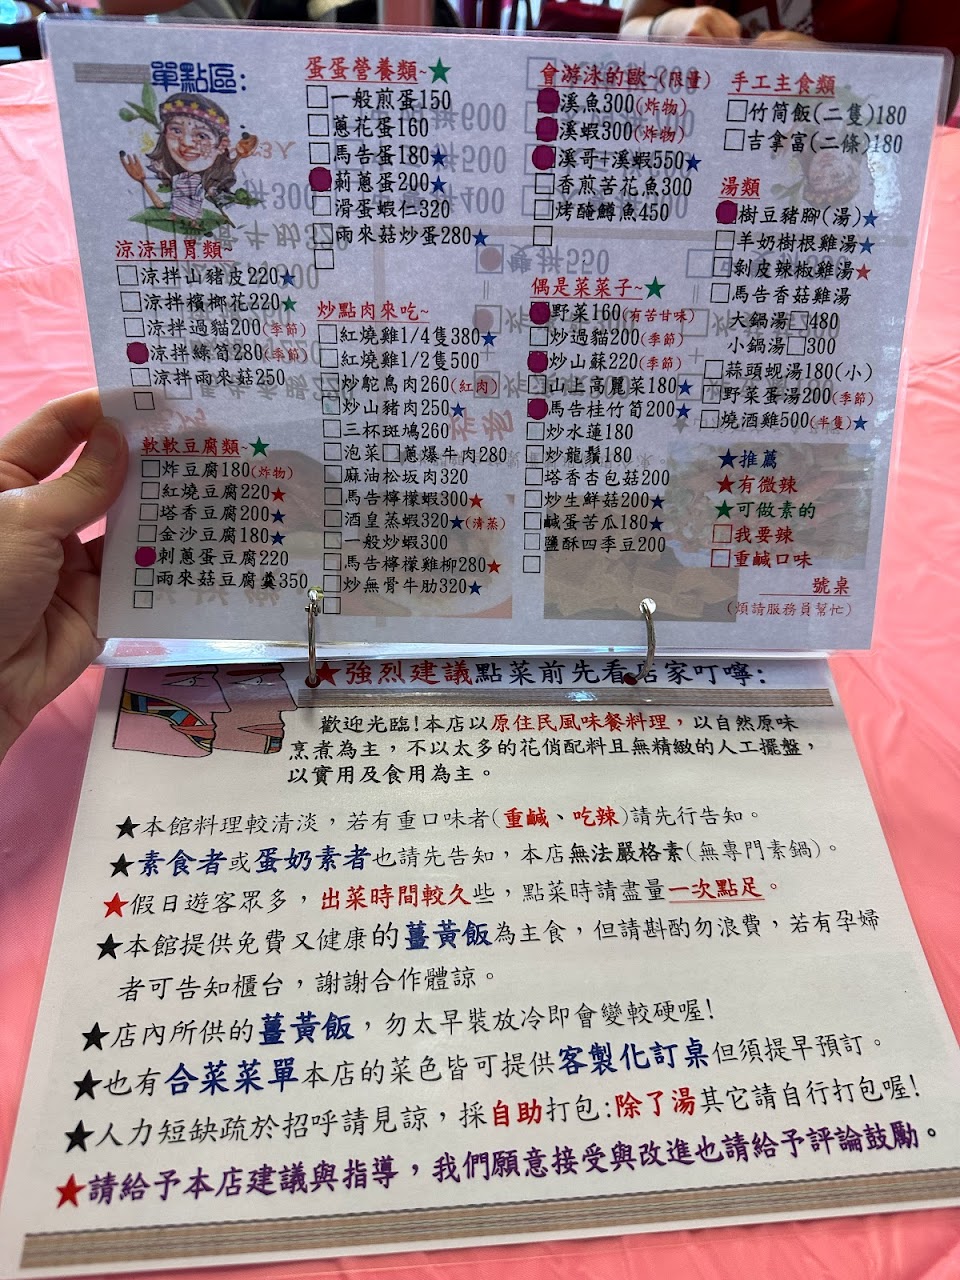 單點區:
涼涼開胃類~
涼拌山豬皮220★
涼拌檳榔花220★
涼拌過貓200(季節)
涼拌綠筍280(季節)
涼拌雨來菇250
軟軟豆腐類~★
炸豆腐180(炸物)
紅燒豆腐220★
塔香豆腐200★
金沙豆腐180★
刺蔥蛋豆腐220
雨來菇豆腐羹350
蛋蛋營養類~★
一般煎蛋150
蔥花蛋160
馬告蛋180★
莿蔥蛋200★
滑蛋蝦仁320
雨來菇炒蛋280★
炒點肉來吃~
紅燒雞1/4隻380★
紅燒雞1/2隻500
炒鴕鳥肉260(紅肉)
炒山豬肉250★
三杯斑鳩260
泡菜□蔥爆牛肉280
麻油松坂肉320
馬告檸檬蝦300★
酒皇蒸蝦320★(清蒸)
一般炒蝦300
馬告檸檬雞柳280★
炒無骨牛肋320★
會游泳的歐~(限量)
溪魚300(炸物)
溪蝦300(炸物)
溪哥+溪蝦550★
香煎苦花魚300
烤醃鱒魚450
偶是菜菜子~★
野菜160(有苦甘味)
炒過貓200(季節)
炒山蘇220(季節)
山上高麗菜180★
馬告桂竹筍200★
炒水蓮180
炒龍鬚180
塔香杏包菇200
炒生鮮菇200★
鹹蛋苦瓜180★
鹽酥四季豆200
手工主食類
竹筒飯(二隻)180
吉拿富(二條)180
湯類
樹豆豬腳(湯)★
羊奶樹根雞湯★
剝皮辣椒雞湯★
馬告香菇雞湯
大鍋湯□480
小鍋湯□300
蒜頭蜆湯180(小)
野菜蛋湯200(季節)
燒酒雞500(半隻)★
★推薦
★有微辣
★可做素的
□我要辣
□重鹹口味
號桌
(煩請服務員幫忙)
★強烈建議點菜前先看店家叮嚀:
歡迎光臨!本店以原住民風味餐料理，以自然原味
烹煮為主，不以太多的花俏配料且無精緻的人工擺盤，
以實用及食用為主。
★本館料理較清淡，若有重口味者(重鹹、吃辣)請先行告知。
★素食者或蛋奶素者也請先告知，本店無法嚴格素(無專門素鍋)。
★假日遊客眾多，出菜時間較久些，點菜時請盡量一次點足。
★本館提供免費又健康的薑黃飯為主食，但請斟酌勿浪費，若有孕婦
者可告知櫃台，謝謝合作體諒。
★店內所供的薑黃飯，勿太早裝放冷即會變較硬喔!
★也有合菜菜單本店的菜色皆可提供客製化訂桌但須提早預訂。
★人力短缺疏於招呼請見諒，採自助打包:除了湯其它請自行打包喔!
★請給予本店建議與指導，我們願意接受與改進也請給予評論鼓勵。